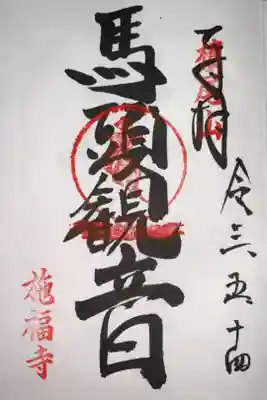 奉拝
令三五十四
馬頭観音
施福寺